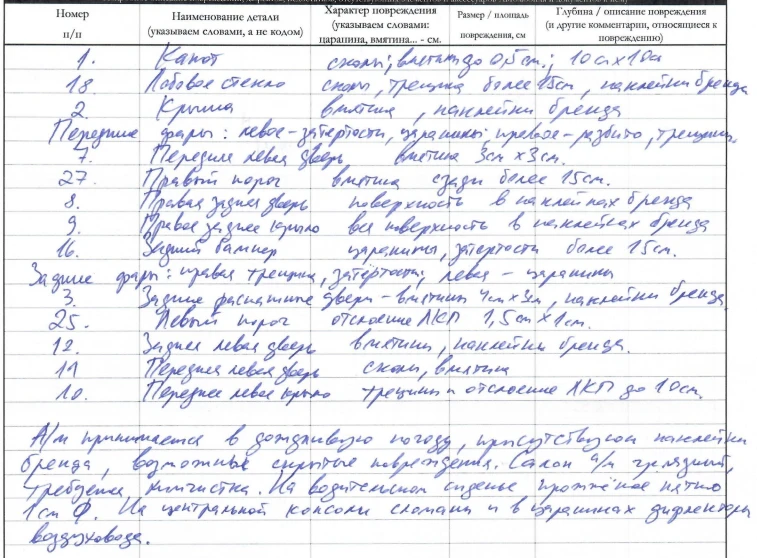 Номер п/п Наименование детали (указываем словами, а не кодом) Характер повреждения (указываем словами: царапина, вмятина... - см. Размер / площадь повреждения, см Глубина / описание повреждения (и другие комментарии, относящиеся к повреждению)
1. Капот сколы, вмятины до 0,5см.; 10смх10см
18. Лобовое стекло сколы, трещина более 15см, наклейки бренда
2. Крыша вмятина, наклейки бренда
Передние фары: левое-затертости, царапины правое-разбито, трещины.
7. Передние левая дверь, вмятина 3см х3см.
27. Правый порог вмятина сзади более 15см.
8. Правая задняя дверь поверхность в наклейках бренда
9. Правое заднее крыло вся поверхность в наклейках бренда
16. Задний бампер царапины, затертости более 15см.
Задние фары: правая трещина, затёртости, левая - царапины
3. Задние распашные двери-вмятины 4см х3см, наклейки бренда.
25. Левый порог отслоение ЛКП 1,5см х1см.
12. Задняя левая дверь вмятины, наклейки бренда.
11 Передняя левая дверь сколы, вмятина
10. Переднее левое крыло трещины и отслоение ЛКП до 10см.
А/м принимается в дождливую погоду, присутствуют наклейки
бренда, возможные скрытые повреждения. Салон а/м грязный,
требуется химчистка. На водительском сиденье прожжёное пятно
1см Ф. На центральной консоли сломаны и в царапинах дифлектора
воздуховода.